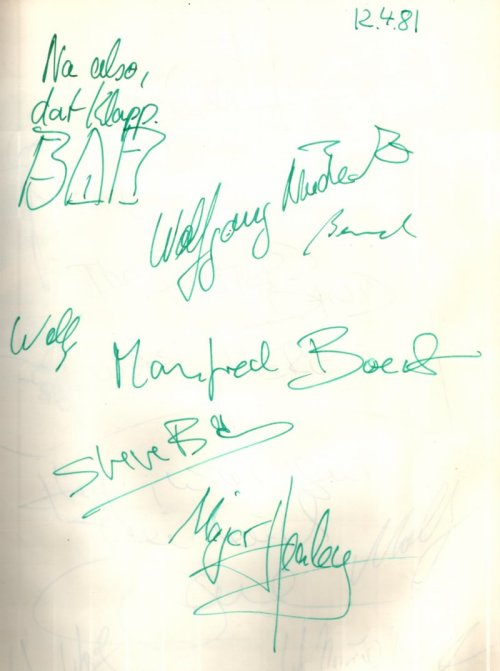 12.4.81
Na also,
dat Klapp.
BAP
Wolfgang Niedeck
Bernd
Wolf
Manfred Boeck
Steve B
Major Henley